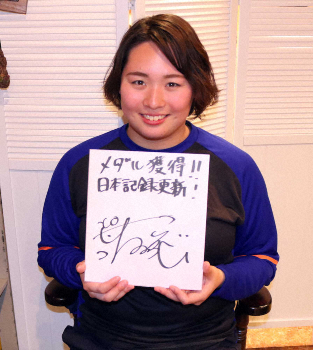 メダル獲得!!
日本記録更新!